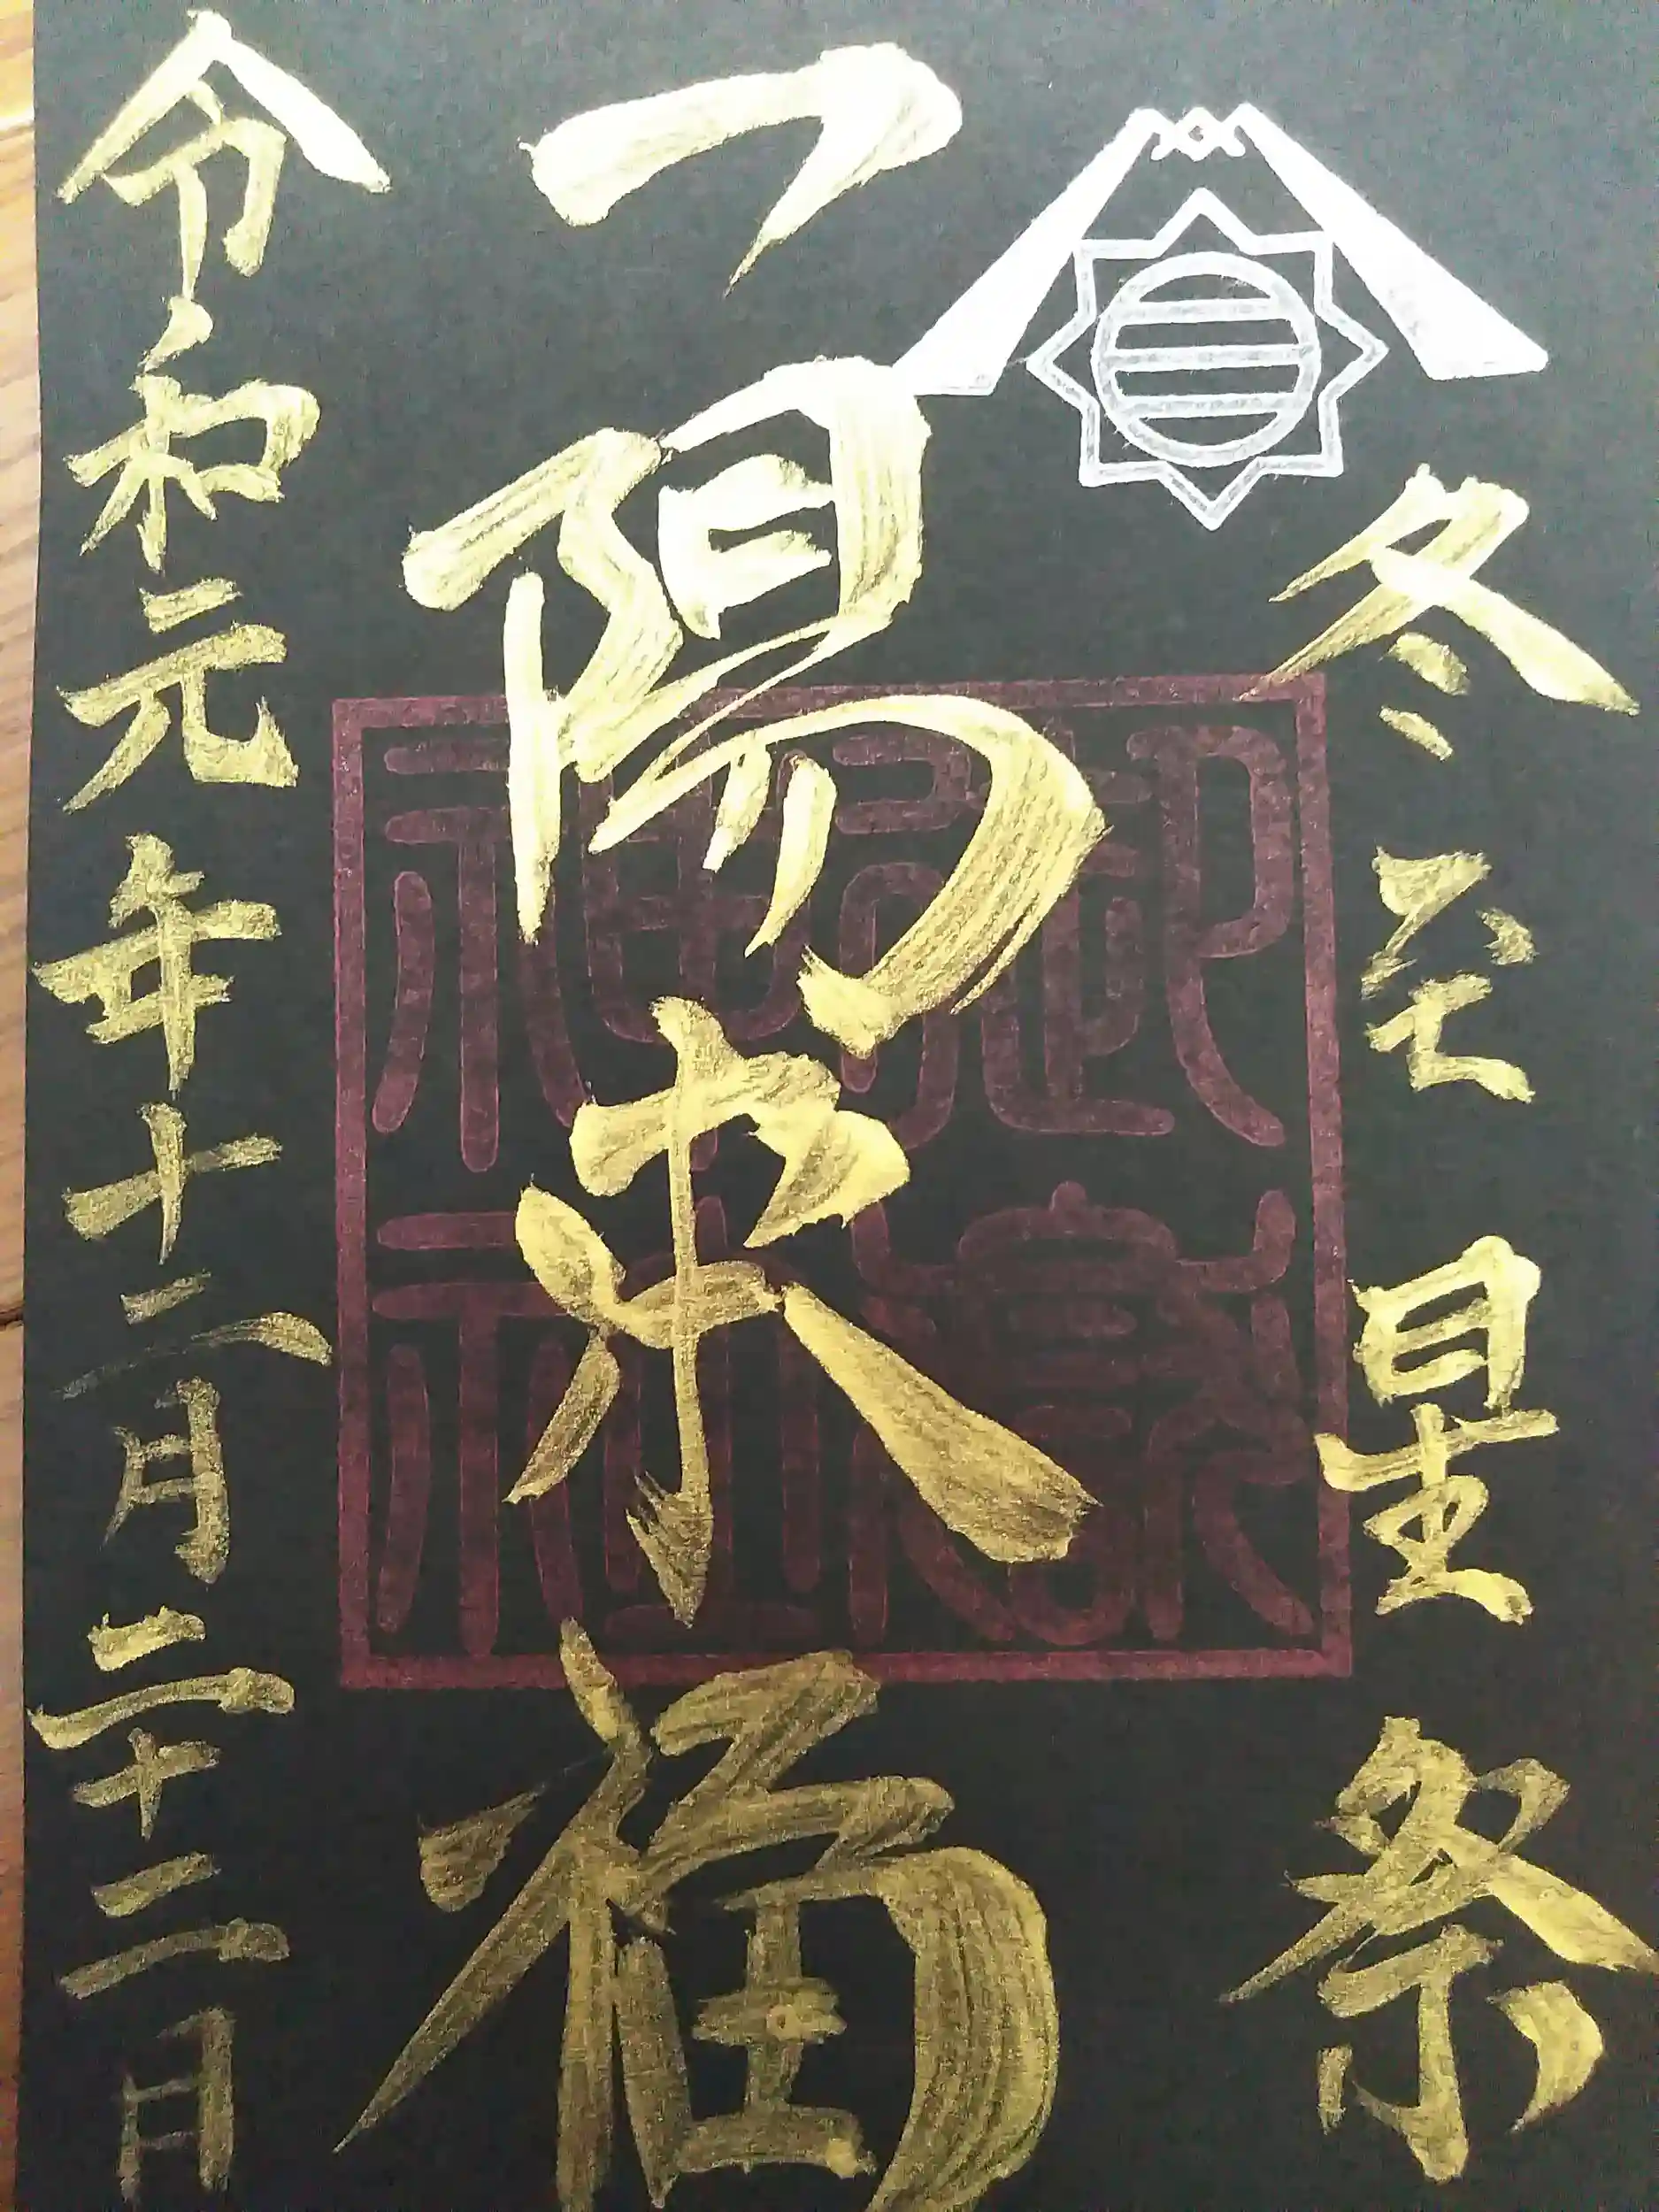 冬至星祭
一陽来福
令和元年十二月二十二日
御嶽
神社